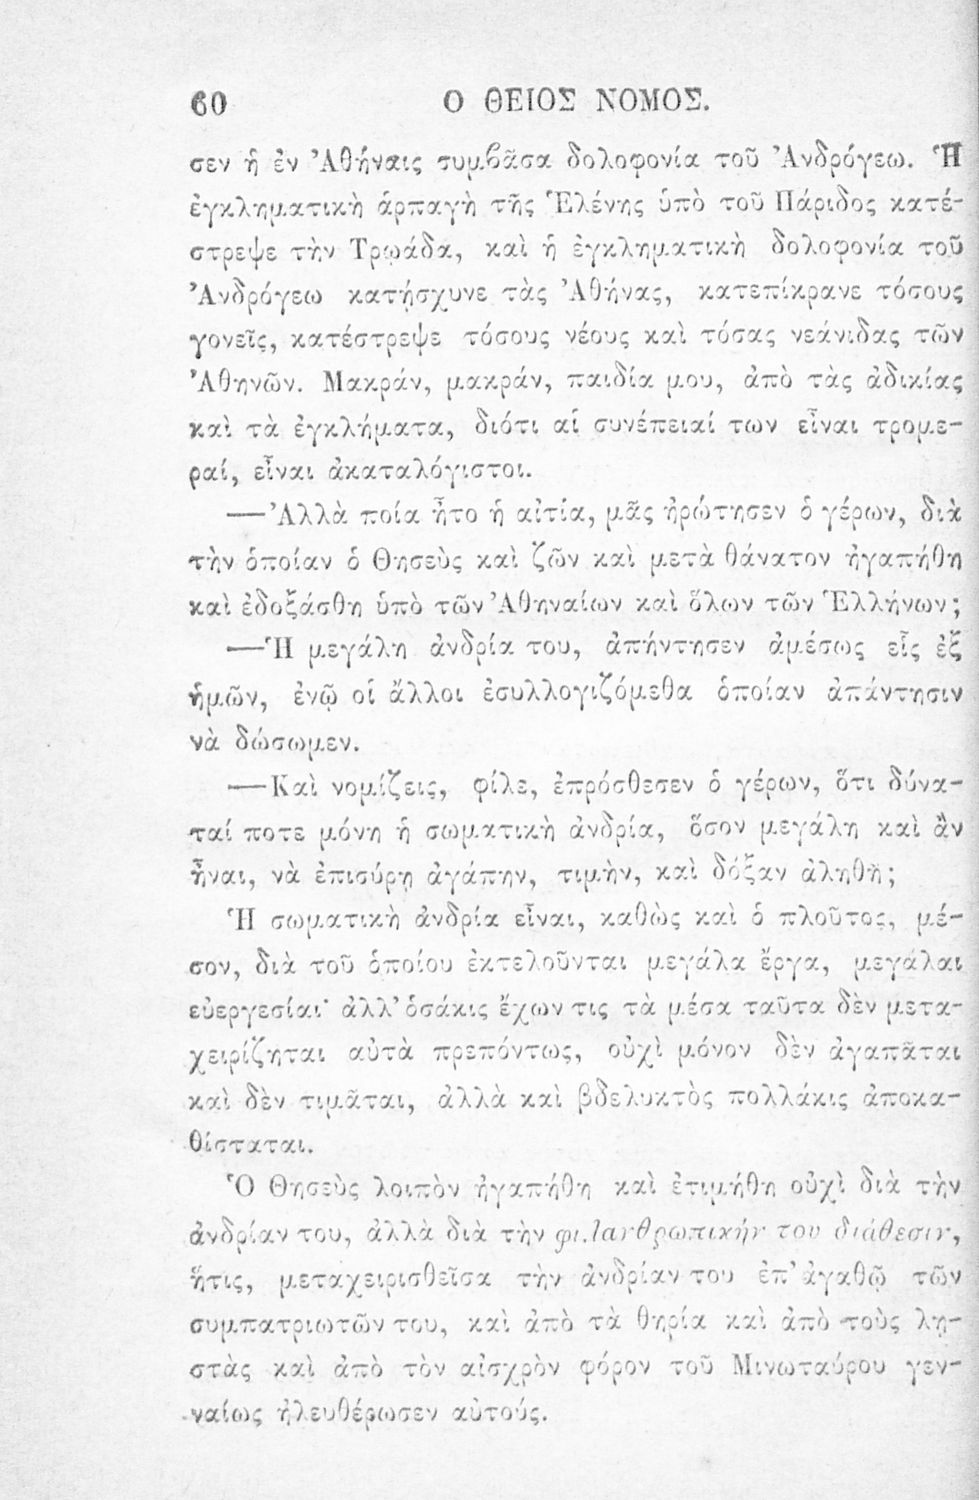 60 Ο ΘΕΙΟΣ ΝΟΜΟΣ.
σεν ἡ ἐν Ἀθήναις συμβᾶσα δολοφονία τοῦ Ἀνδρόγεω. Ἡ
ἐγκληματικὴ ἁρπαγὴ τῆς Ἑλένης ὑπὸ τοῦ Πάριδος κατέ-
στρεψε τὴν Τρῳάδα, καὶ ἡ ἐγκληματικὴ δολοφονία τοῦ
Ἀνδρόγεω κατήσχυνε τὰς Ἀθήνας, κατεπίκρανε τόσους
γονεῖς, κατέστρεψε τόσους νέους καὶ τόσας νεάνιδας τῶν
Ἀθηνῶν. Μακράν, μακράν, παιδία μου, ἀπὸ τὰς ἀδικίας
καὶ τὰ ἐγκλήματα, διότι αἱ συνέπειαί των εἶναι τρομε-
ραί, εἶναι ἀκαταλόγιστοι.
—Ἀλλὰ ποία ἦτο ἡ αἰτία, μᾶς ἠρώτησεν ὁ γέρων, διὰ
τὴν ὁποίαν ὁ Θησεὺς καὶ ζῶν καὶ μετὰ θάνατον ἠγαπήθη
καὶ ἐδοξάσθη ὑπὸ τῶν Ἀθηναίων καὶ ὅλων τῶν Ἑλλήνων;
—Ἡ μεγάλη ἀνδρία του, ἀπήντησεν ἀμέσως εἷς ἐξ
ἡμῶν, ἐνῷ οἱ ἄλλοι ἐσυλλογιζόμεθα ὁποίαν ἀπάντησιν
νὰ δώσωμεν.
—Καὶ νομίζεις, φίλε, ἐπρόσθεσεν ὁ γέρων, ὅτι δύνα-
ταί ποτε μόνη ἡ σωματικὴ ἀνδρία, ὅσον μεγάλη καὶ ἂν
ἦναι, νὰ ἐπισύρῃ ἀγάπην, τιμὴν, καὶ δόξαν ἀληθῆ;
Ἡ σωματικὴ ἀνδρία εἶναι, καθὼς καὶ ὁ πλοῦτος, μέ-
σον, διὰ τοῦ ὁποίου ἐκτελοῦνται μεγάλα ἔργα, μεγάλαι
εὐεργεσίαι· ἀλλ’ ὁσάκις ἔχων τις τὰ μέσα ταῦτα δὲν μετα-
χειρίζηται αὐτὰ πρεπόντως, οὐχὶ μόνον δὲν ἀγαπᾶται
καὶ δὲν τιμᾶται, ἀλλὰ καὶ βδελυκτὸς πολλάκις ἀποκα-
θίσταται.
Ὁ Θησεὺς λοιπὸν ἠγαπήθη καὶ ἐτιμήθη οὐχὶ διὰ τὴν
ἀνδρίαν του, ἀλλὰ διὰ τὴν φιλανθρωπικήν του διάθεσιν,
ἥτις, μεταχειρισθεῖσα τὴν ἀνδρίαν του ἐπ’ ἀγαθῷ τῶν
συμπατριωτῶν του, καὶ ἀπὸ τὰ θηρία καὶ ἀπὸ τοὺς λῃ-
στὰς καὶ ἀπὸ τὸν αἰσχρὸν φόρον τοῦ Μινωταύρου γεν-
ναίως ἠλευθέρωσεν αὐτούς.